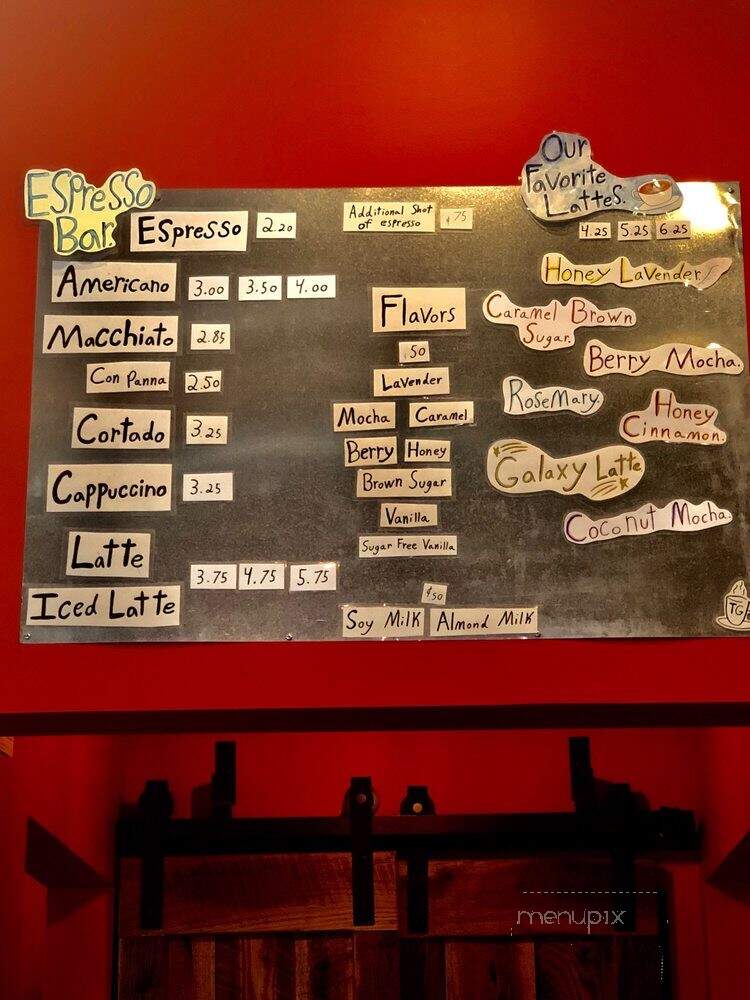 Espresso
Bar.
Espresso 2.20
Americano 3.00 3.50 4.00
Macchiato 2.85
Con Panna 2.50
Cortado 3.25
Cappuccino 3.25
Latte
Iced Latte
3.75 4.75 5.75
Additional Shot
of espresso
.75
Flavors
.50
Lavender
Mocha Caramel
Berry Honey
Brown Sugar
Vanilla
Sugar Free Vanilla
$.50
Soy Milk Almond Milk
Our
Favorite
Lattes.
4.25 5.25 6.25
Honey Lavender
Caramel Brown
Sugar.
Berry Mocha.
Rosemary.
Honey
Cinnamon.
Galaxy Latte
Coconut Mocha.
menupix